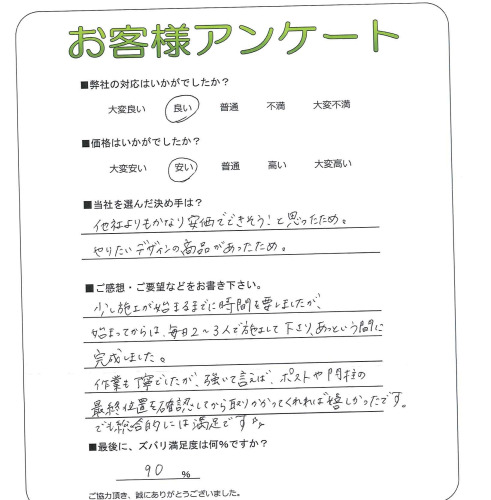 お客様アンケート
■弊社の対応はいかがでしたか？
大変良い 良い 普通 不満 大変不満
■価格はいかがでしたか？
大変安い 安い 普通 高い 大変高い
■当社を選んだ決め手は？
他社よりもかなり安価でできそう！と思ったため。
やりたいデザインの商品があったため。
■ご感想・ご要望などをお書き下さい。
少し施工が始まるまでに時間を要しましたが、
始まってからは、毎日2～3人で施工して下さり、あっという間に
完成しました。
作業も丁寧でしたが、強いて言えば、ポストや門柱の
最終位置を確認してから取りかかってくれれば嬉しかったです。
でも総合的には満足です☆
■最後に、ズバリ満足度は何％ですか？
90 ％
ご協力頂き、誠にありがとうございました。